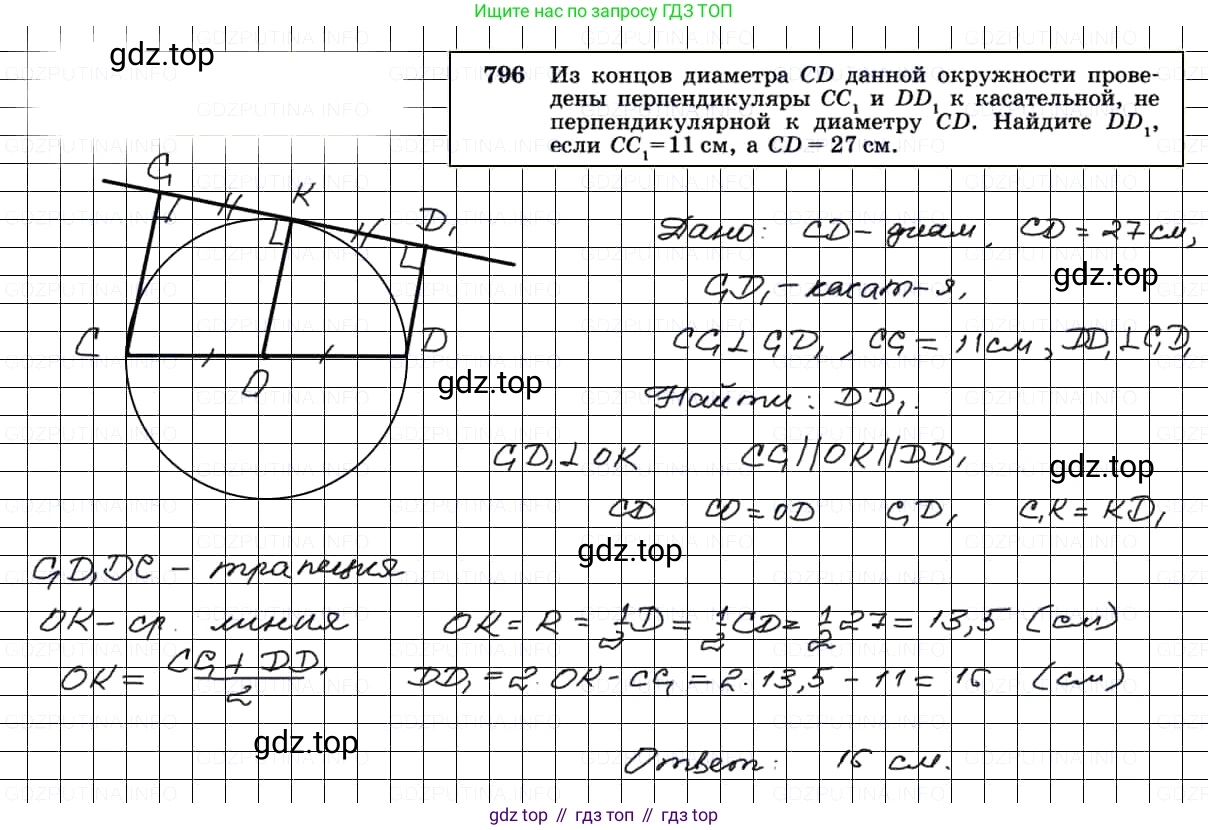 Ищите нас по запросу ГДЗ ТОП
gdz.top
796 Из концов диаметра CD данной окружности прове-
дены перпендикуляры CC₁ и DD₁ к касательной, не
перпендикулярной к диаметру CD. Найдите DD₁,
если CC₁ = 11 см, а CD = 27 см.
C₁
K
D₁
C
D
O
Дано: CD – диам, CD = 27 см,
C₁D₁ – касат-я,
gdz.top
CC₁ ⊥ C₁D₁, CC₁ = 11 см, DD₁ ⊥ C₁D₁
gdz.top
Найти: DD₁.
C₁D₁ ⊥ OK CC₁ || OK || DD₁
gdz.top
CD CO = OD C₁D₁ C₁K = KD₁
gdz.top
C₁D₁DC – трапеция
OK – ср. линия OK = R = 1/2 D = 1/2 CD = 1/2 27 = 13,5 (см)
OK = (CC₁ + DD₁)/2 DD₁ = 2 · OK - CC₁ = 2 · 13,5 - 11 = 16 (см)
gdz.top
Ответ: 16 см.
gdz top // гдз топ // gdz top
GDZPUTINA.INFO